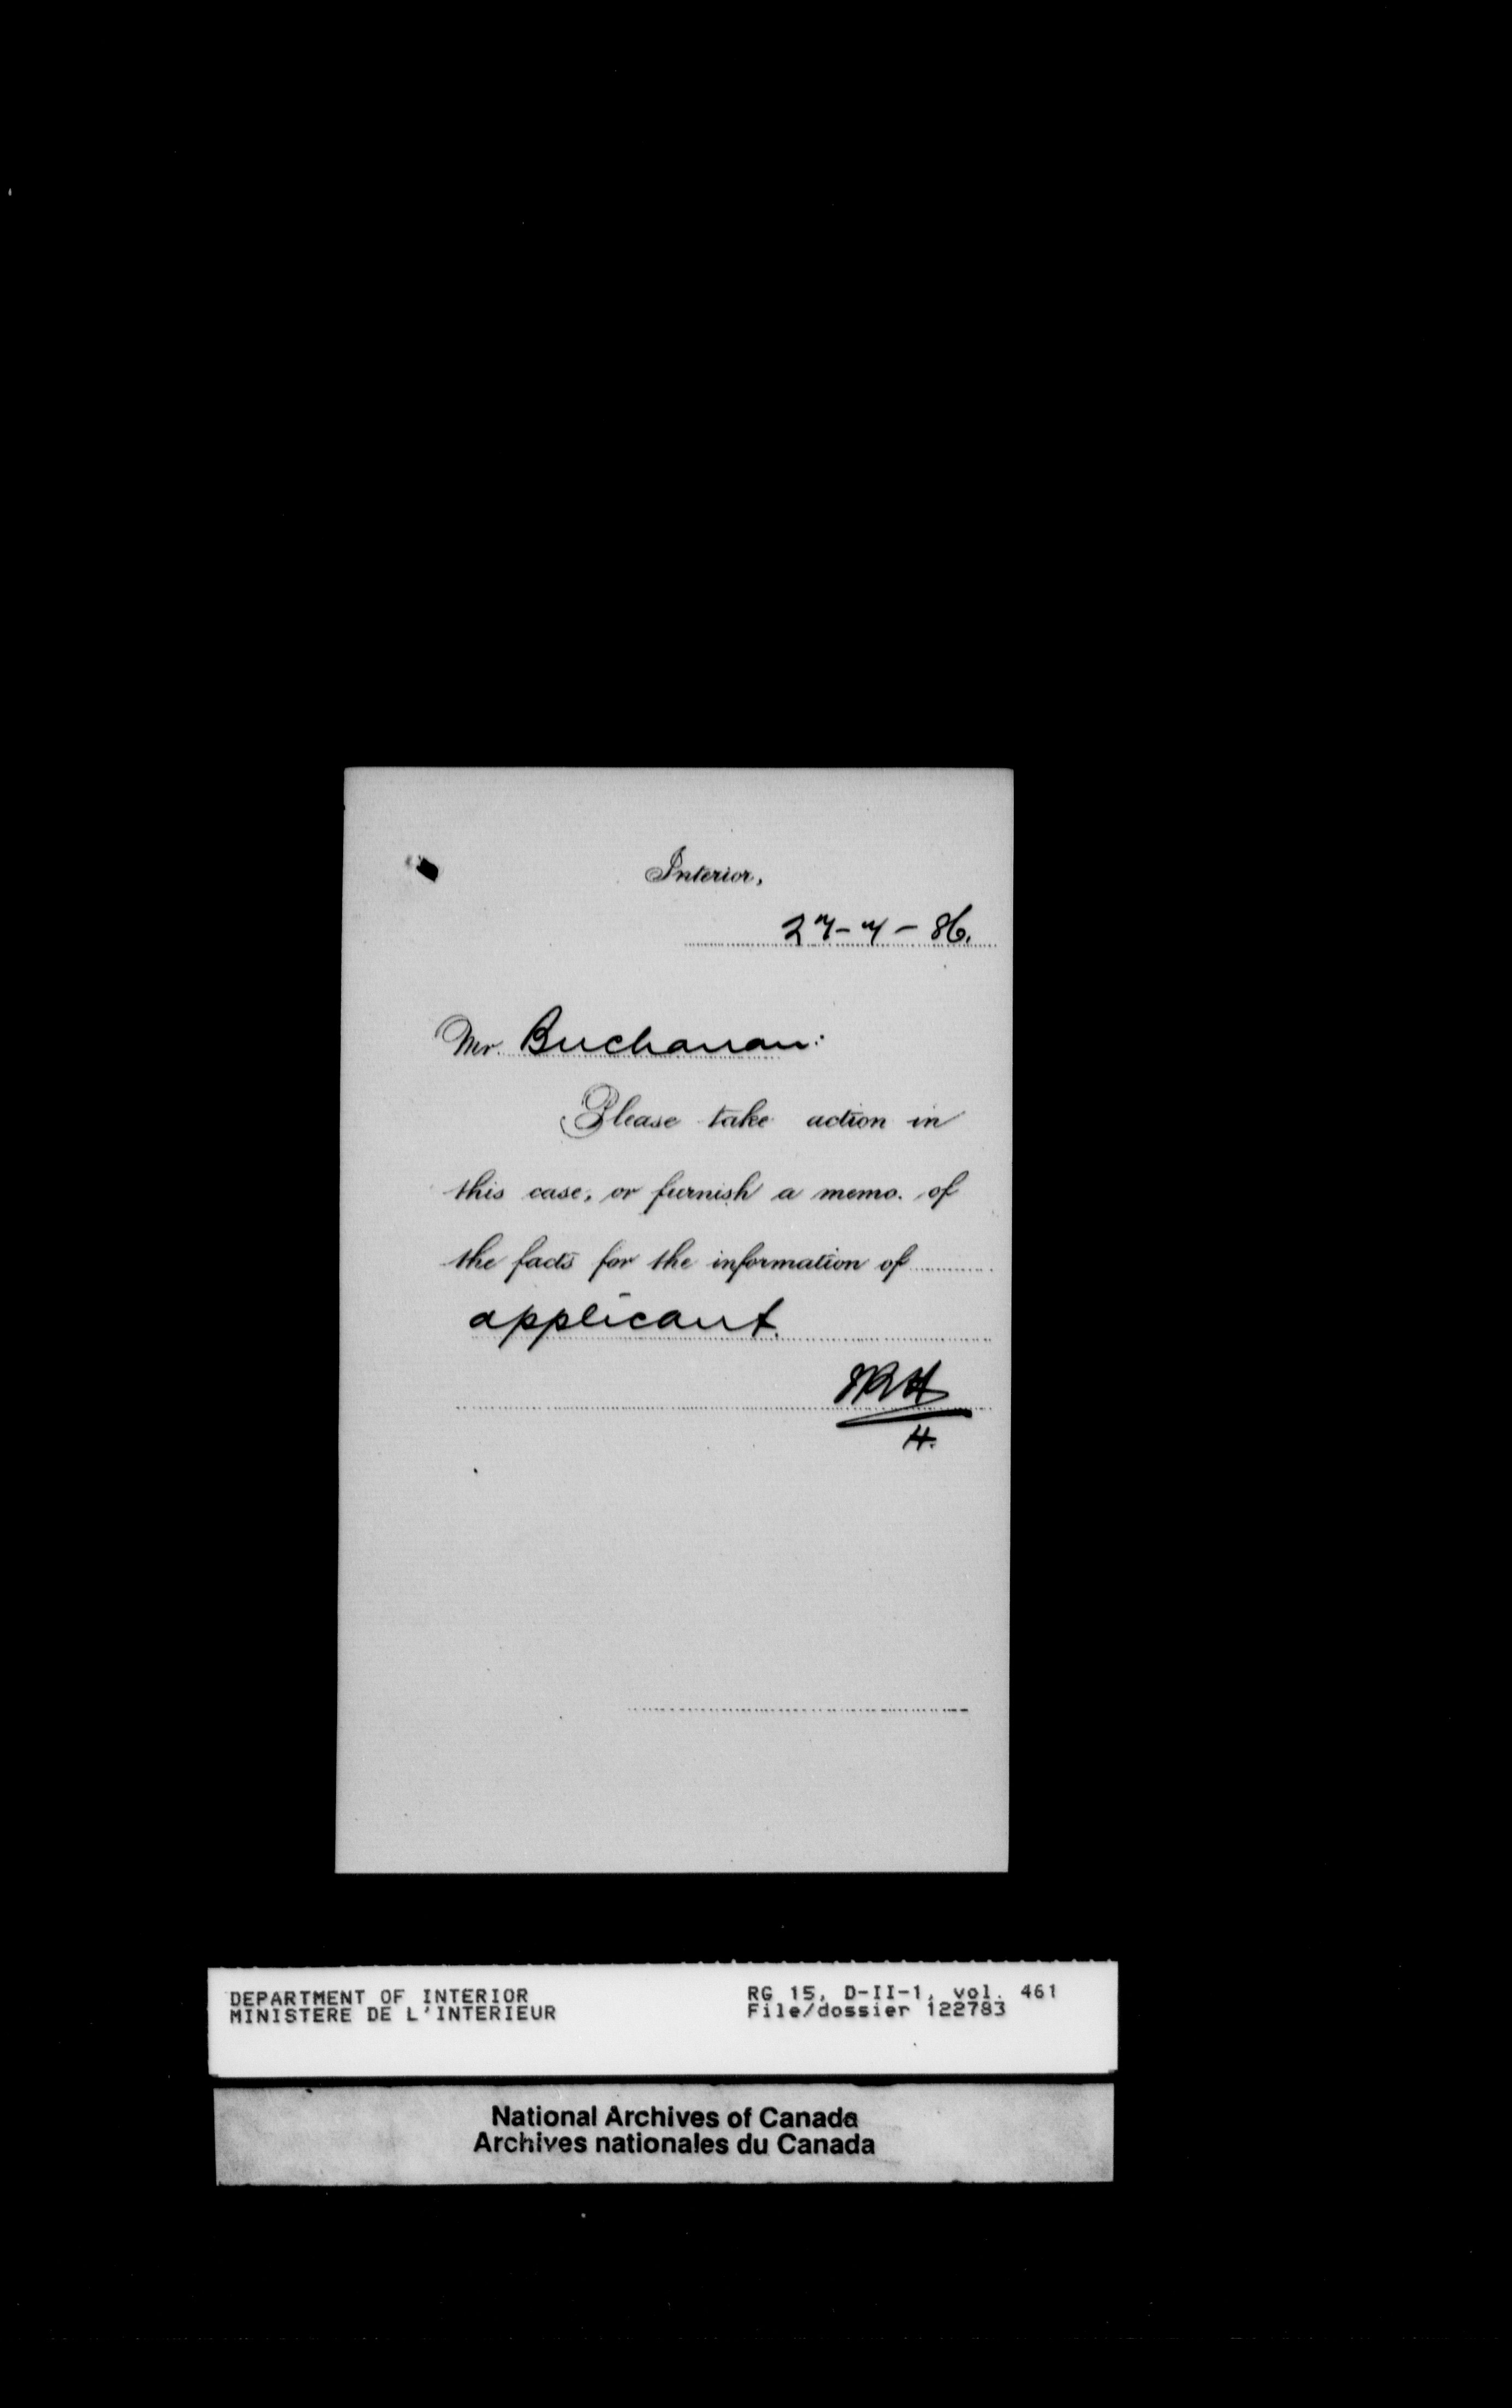 Interior,
27-7-86.
Mr. Buchanan:
Please take action in
this case, or furnish a memo. of
the facts for the information of
applicant.
H.
DEPARTMENT OF INTERIOR
MINISTERE DE L'INTERIEUR
RG 15, D-II-1, vol. 461
File/dossier 122783
National Archives of Canada
Archives nationales du Canada